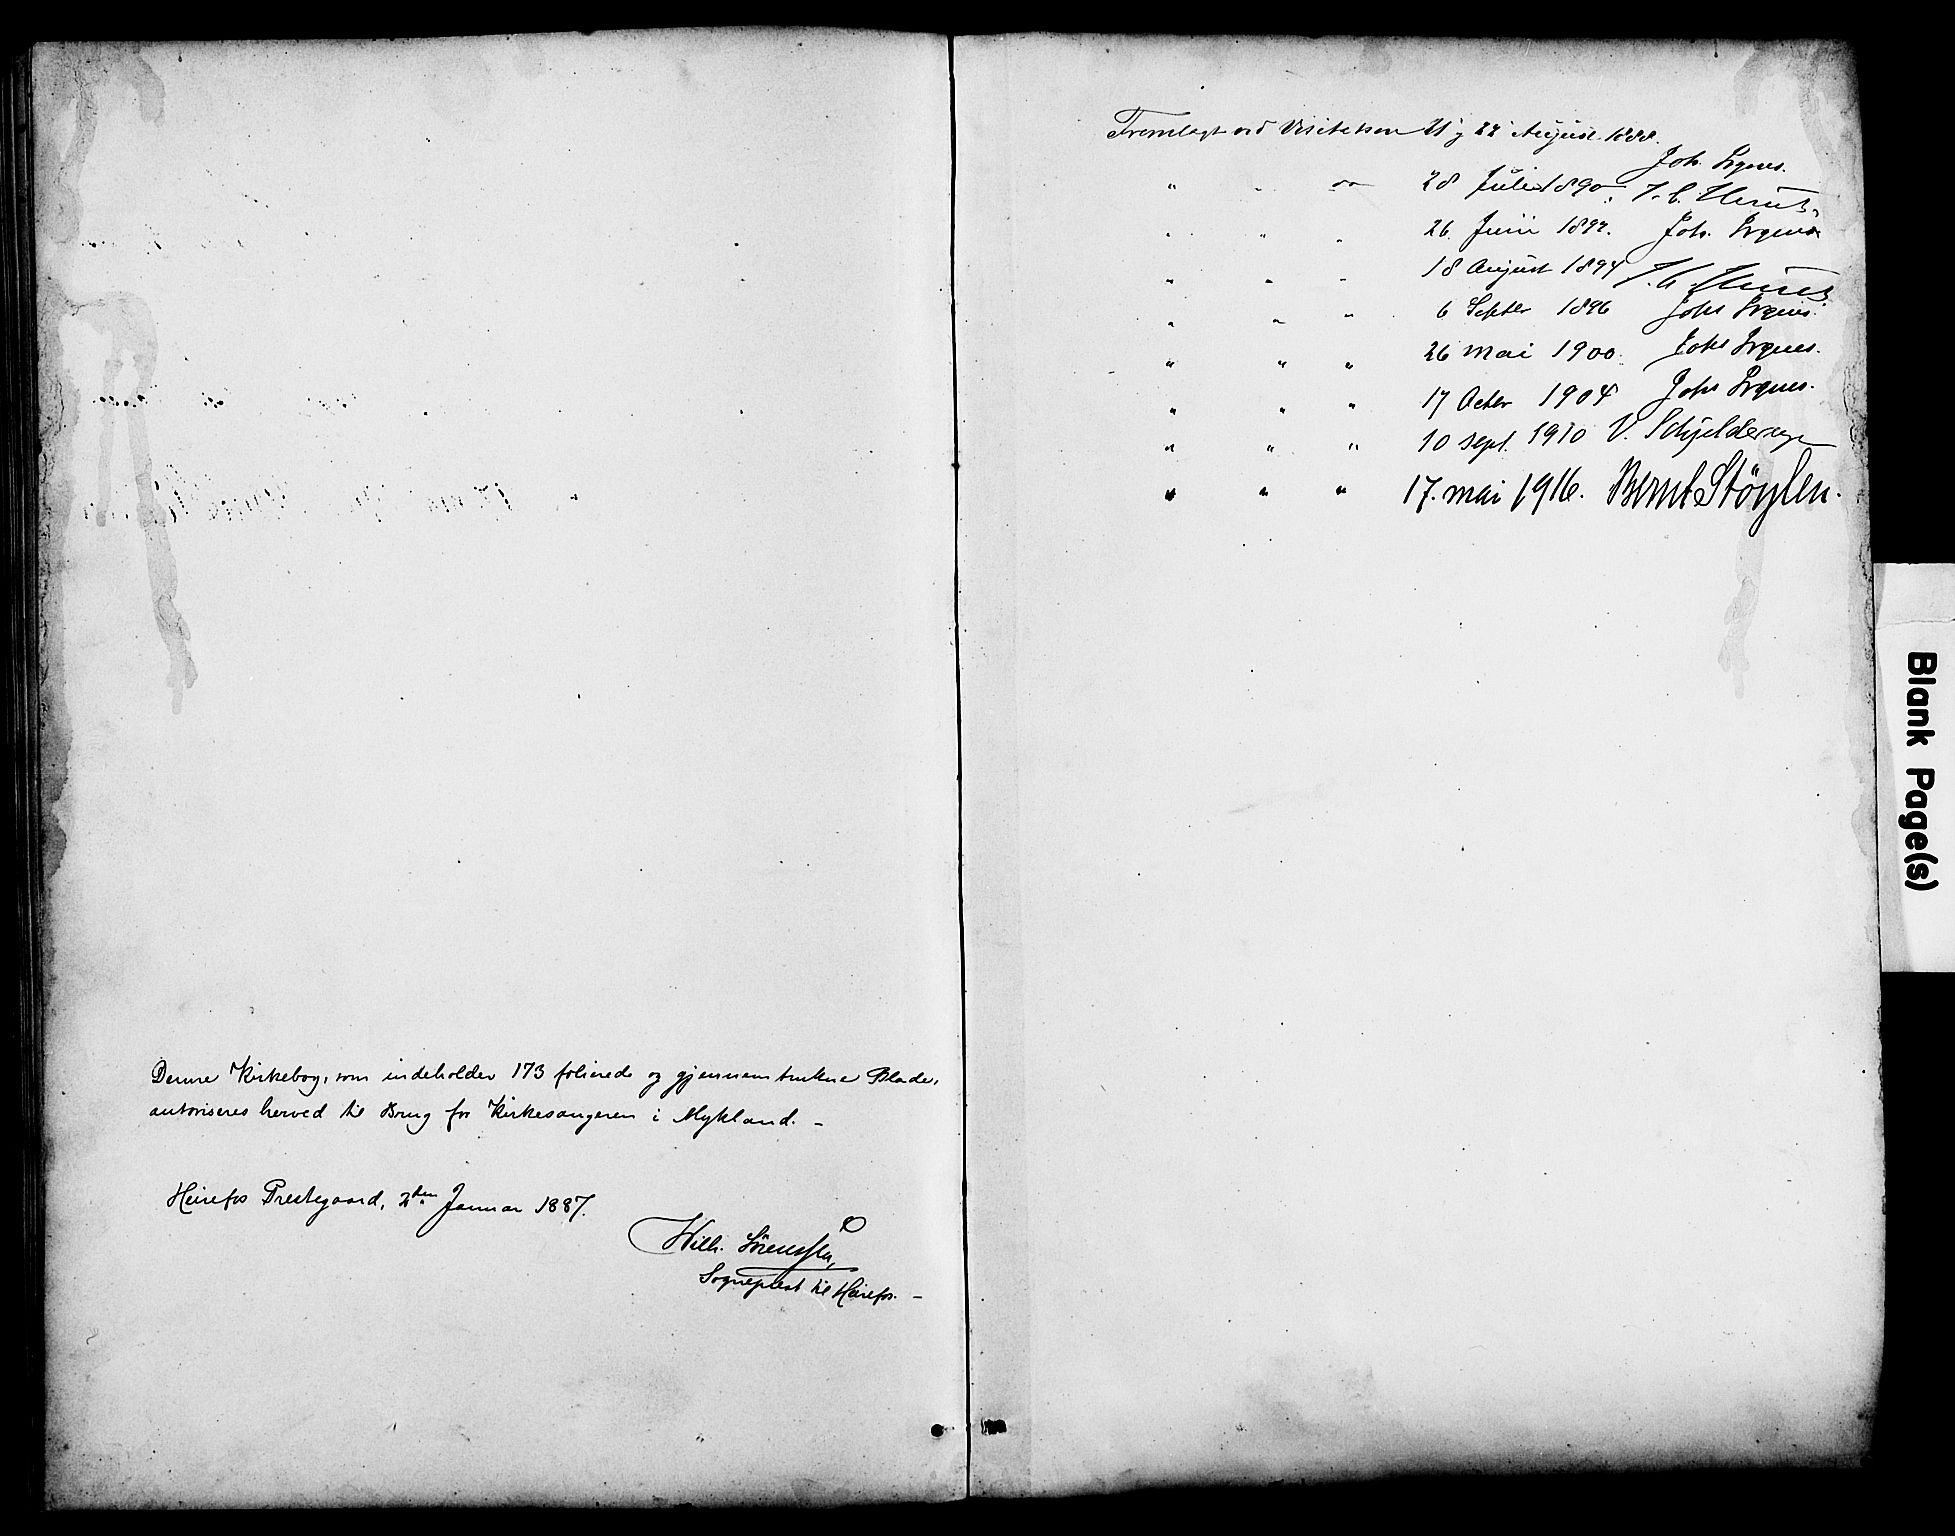 Denne Kirkebog, som indeholder 173 folierede og gjennemtrukne Blade,
autoriseres herved til Brug for Kirkesangeren i Mykland. –
Heirefos Prestegaard, 2den Januar 1887.
Wilh. Sörenssen,
Sogneprest til Heirefos. –
Fremlagt ved Visitatsen 21 og 22 August 1888.
Joh.
" " " 28 Juli 1890. J. C.
" " " 26. Juni 1892. Joh.
" " " 18 August 1894 J. C.
" " " 6 Septbr 1896 Johs
" " " 26 mai 1900. Johs
" " " 17 Octbr 1904 Johs
" " " 10 sept. 1910 V. Schjelderup
" " " 17. mai 1916. Bernt Stöylen.
Blank Page(s)